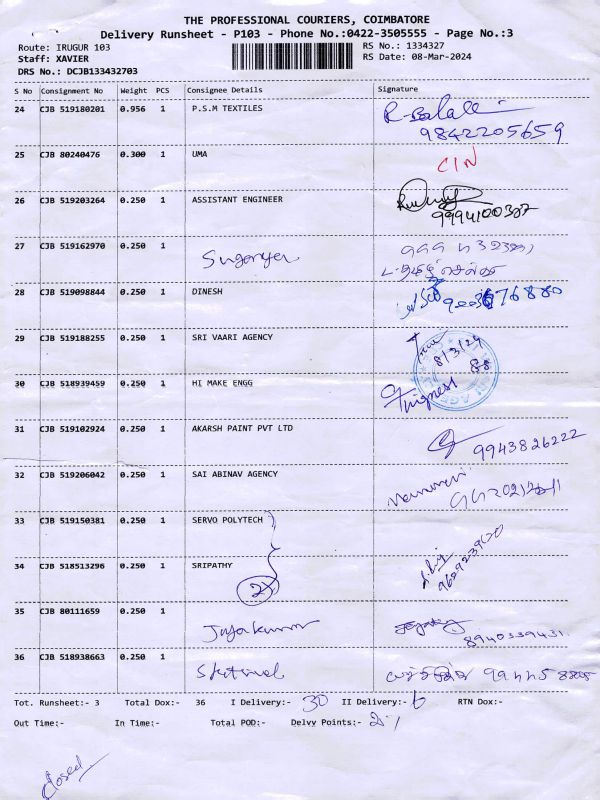 THE PROFESSIONAL COURIERS, COIMBATORE
Delivery Runsheet - P103 - Phone No.:0422-3505555 - Page No.:3
Route: IRUGUR 103
RS No.: 1334327
Staff: XAVIER
RS Date: 08-Mar-2024
DRS No.: DCJB133432703
S No Consignment No Weight PCS Consignee Details Signature
24 CJB 519180201 0.956 1 P.S.M TEXTILES
9842205659
25 CJB 80240476 0.300 1 UMA CIN
26 CJB 519203264 0.250 1 ASSISTANT ENGINEER
9994100387
27 CJB 519162970 0.250 1
28 CJB 519098844 0.250 1 DINESH
29 CJB 519188255 0.250 1 SRI VAARI AGENCY 8/3/24
30 CJB 518939459 0.250 1 HI MAKE ENGG
31 CJB 519102924 0.250 1 AKARSH PAINT PVT LTD 9943826222
32 CJB 519206042 0.250 1 SAI ABINAV AGENCY
33 CJB 519150381 0.250 1 SERVO POLYTECH
34 CJB 518513296 0.250 1 SRIPATHY 9629239620
35 CJB 80111659 0.250 1 Jayakumar 8940339431
36 CJB 518938663 0.250 1
Tot. Runsheet:- 3 Total Dox:- 36 I Delivery:- 30 II Delivery:- 6 RTN Dox:-
Out Time:- In Time:- Total POD:- Delvy Points:-
Closed